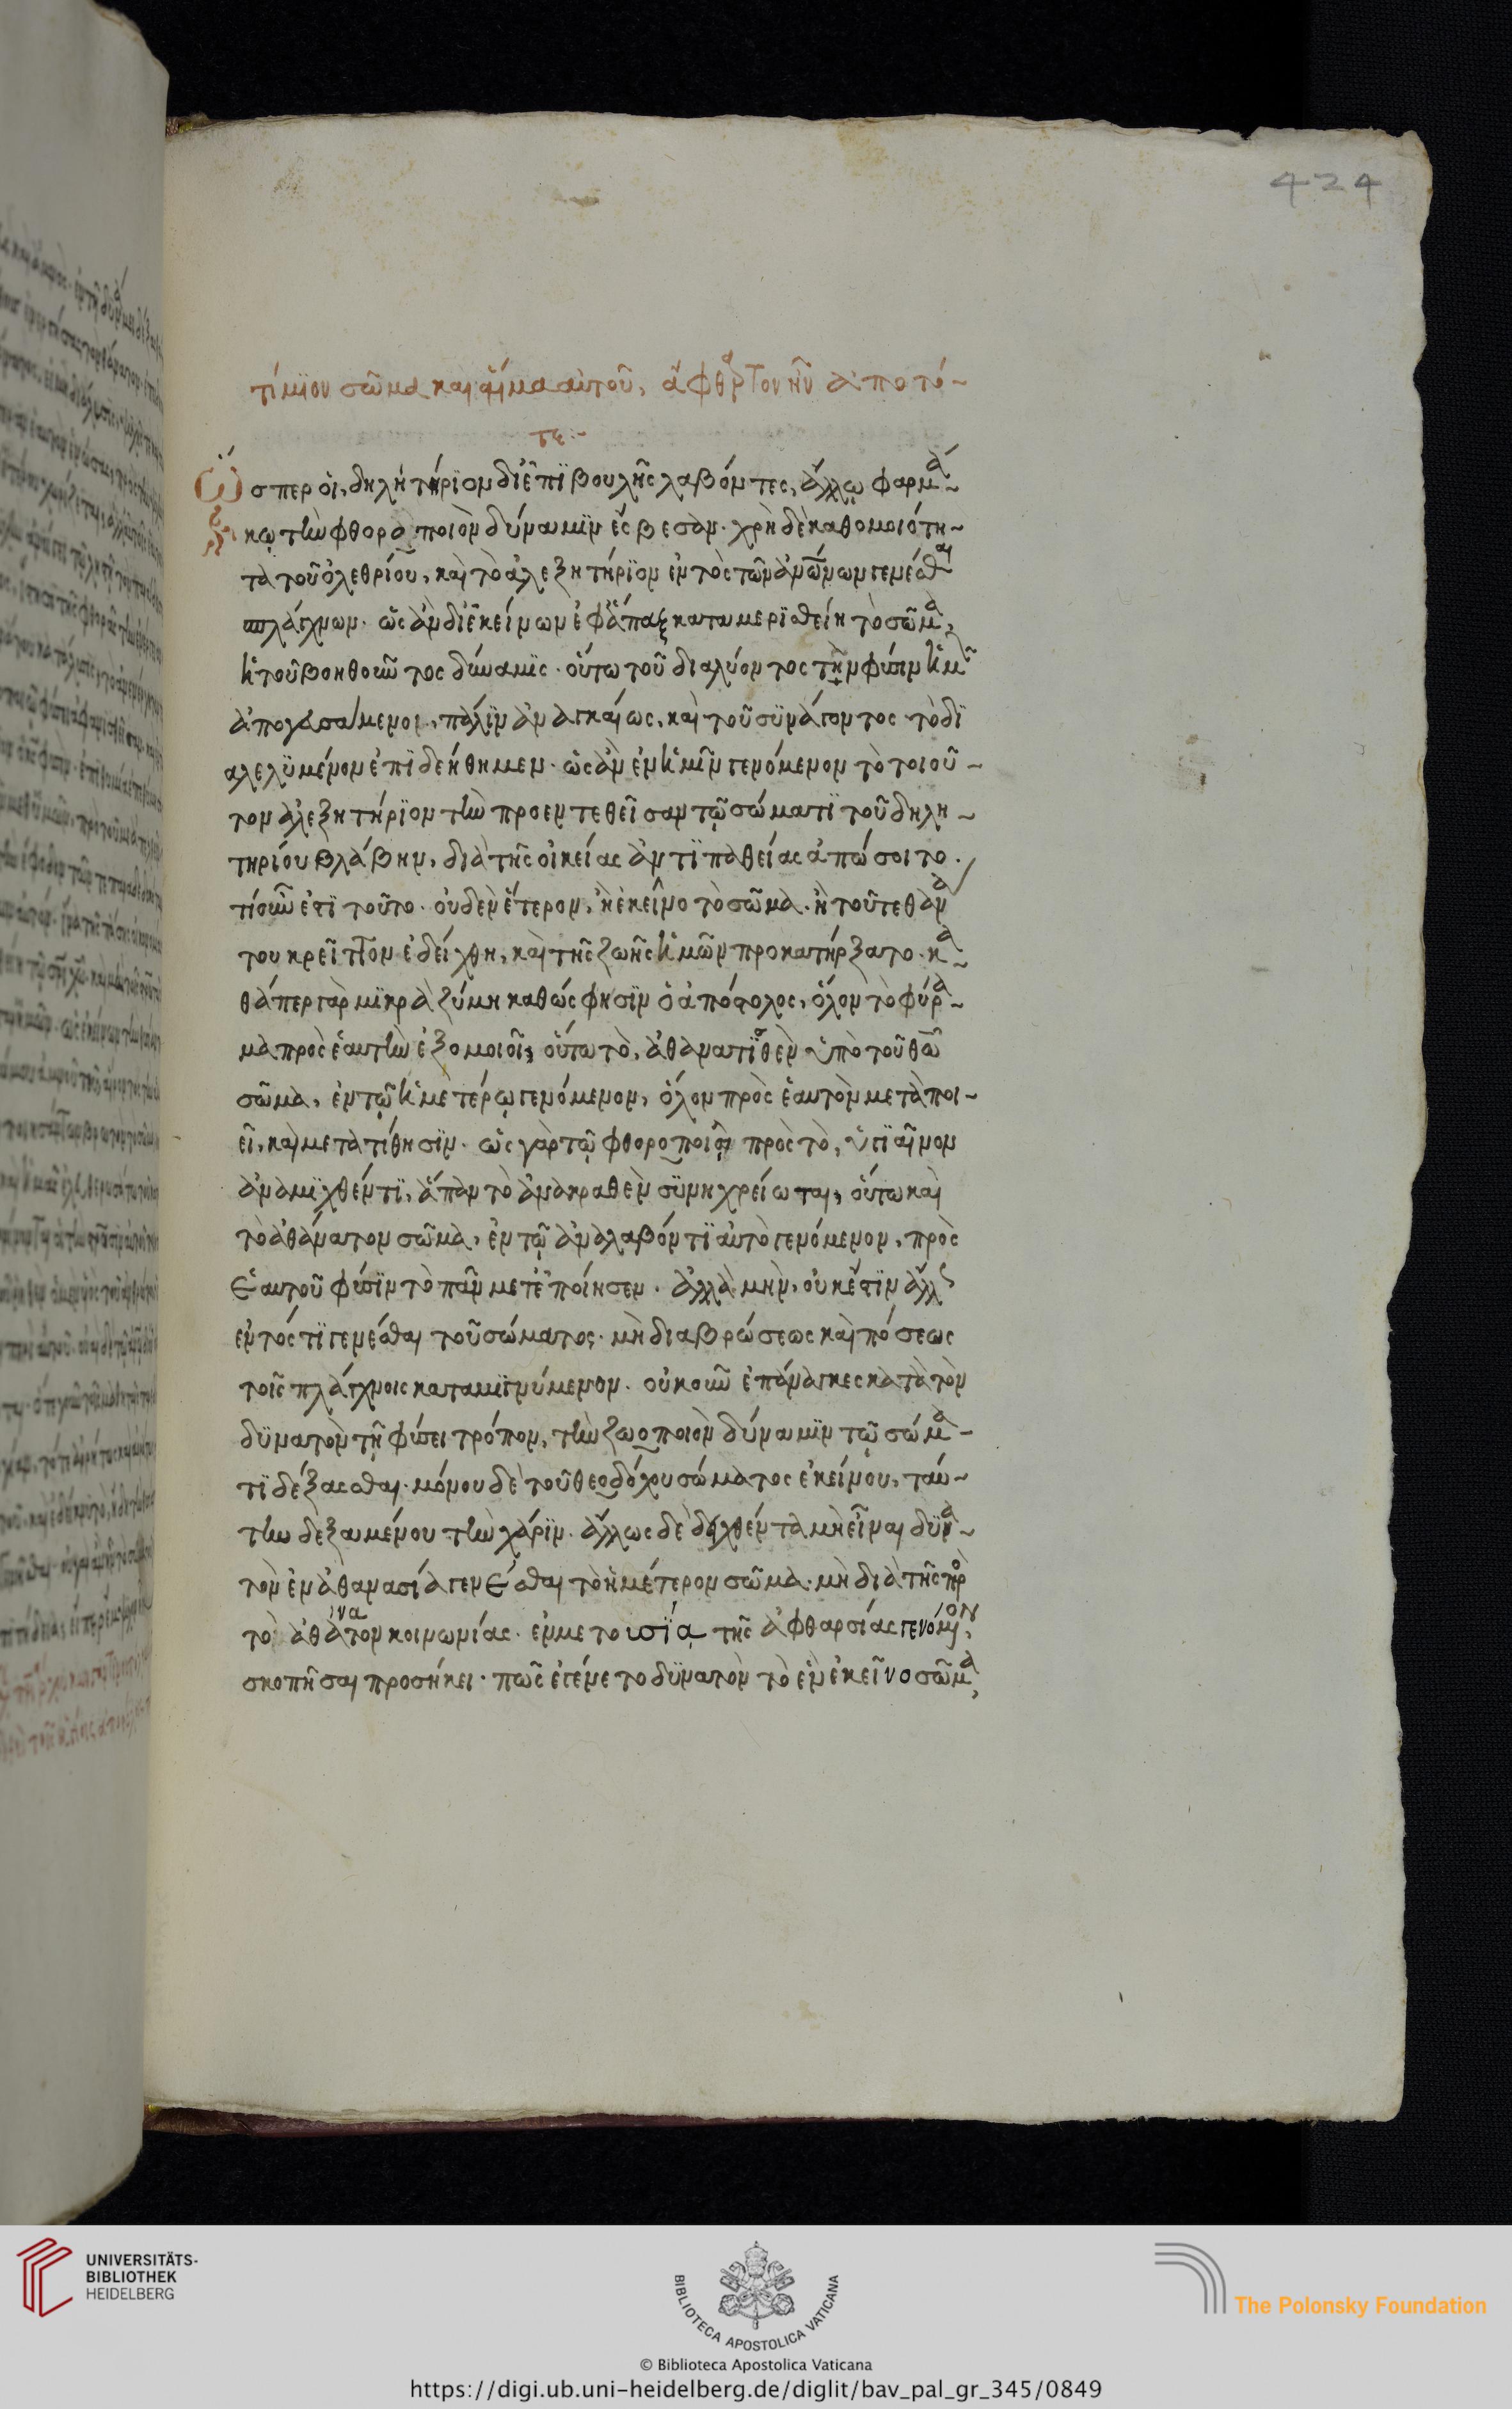 424
τίμιον σῶμα καὶ αἷμα αὐτοῦ, ἄφθρτον ἦν ἀπο τό-
τε
Ὥσπερ οἱ, δηλητήριον δι' ἐπϊβουλῆς λαβόντες, ἄλλω φαρμά-
κω τὴν φθοροποιὸν δύναμϊν ἔσβεσαν. χρὴ δὲ καθομοιότη-
τα τοῦ ὀλεθρίου, καὶ τὸ ἀλεξητήρϊον ἐντὸς τῶν ἀνων γενέσθαι
σπλάγχνων. ὡς ἂν δι' ἐκείνων ἐφἅπαξ καταμερϊσθείη τὸ σῶμα,
ἡ τοῦ βοηθοῦντος δύναμϊς. οὕτω τοῦ διαλύοντος τὴν φύσιν ἡμῶν
ἀπογευσαμενοι, πάλϊν ἀναγκαίως, καὶ τοῦ συνάγοντος τὸ δϊ
αλελϋμένον ἐπϊδεήθημεν. ὡς ἂν ἐν ἡμῖν γενόμενον τὸ τοιοῦ-
τον ἀλεξητήρϊον τὴν προεντεθεῖσαν τῷ σώματϊ τοῦ δηλη-
τηρίου βλάβην, διὰ τῆς οἰκείας ἀντϊπαθείας ἀπώσοιτο.
τί οὖν ἐστϊ τοῦτο. οὐδὲν ἕτερον, ἢ ἐκεῖνο τὸ σῶμα. ὃ τοῦ τε θανά
του κρεῖττον ἐδείχθη, καὶ τῆς ζωῆς ἡμῶν προκατήρξατο. κα-
θάπερ γὰρ μϊκρὰ ζύμη καθώς φησϊν ὁ ἀπόστολος, ὅλον τὸ φύρα-
μα πρὸς ἑαυτὴν ἐξομοιοῖ, οὕτω τὸ, ἀθανατϊσθὲν ὑπὸ τοῦ θυ
σῶμα, ἐν τῷ ἡμετέρω γενόμενον, ὅλον πρὸς ἑαυτὸν μεταποι-
εῖ, καὶ μετατίθησϊν. ὡς γὰρ τῷ φθοροποιῷ πρὸς τὸ, ὑγϊαῖνον
ἀναμϊχθέντϊ, ἅπαν τὸ ἀνακραθὲν συνηχρείωται, οὕτω καὶ
τὸ ἀθάνατον σῶμα, ἐν τῷ ἀναλαβόντϊ αὐτὸ γενόμενον, πρὸς
ἑαυτοῦ φύσϊν τὸ πᾶν μετεποίησεν. ἀλλὰ μὴν, οὐκ ἔστϊν ἄλλως
ἐντός τϊ γενέσθαι τοῦ σώματος. μὴ διαβρώσεως καὶ πόσεως
τοῖς πλάγχνοις καταμϊγνύμενον. οὐκοῦν ἐπάναγκες κατὰ τὸν
δϋνατὸν τῇ φύσει τρόπον, τὴν ζωοποιὸν δύναμϊν τῷ σώμα-
τϊ δέξασθαι. μόνου δὲ τοῦ θεοδόχου σώματος ἐκείνου, ταύ-
την δεξαμένου τὴν χάρϊν. ἄλλως δὲ δειχθέντα μὴ εἶναι δϋνα-
τὸν ἐν ἀθανασία γενέσθαι τὸ ἡμέτερον σῶμα. μὴ διὰ τῆς πρὸ
τὸ ἀθάνατον κοινωνίας. ἐν μετουσία τῆς ἀφθαρσίας γενόμενον,
σκοπῆσαι προσήκει. πῶς ἐγένετο δϋνατὸν τὸ ἓν ἐκεῖνο σῶμα,
UNIVERSITÄTS-
BIBLIOTHEK
HEIDELBERG
BIBLIOTECA APOSTOLICA VATICANA
The Polonsky Foundation
© Biblioteca Apostolica Vaticana
https://digi.ub.uni-heidelberg.de/diglit/bav_pal_gr_345/0849